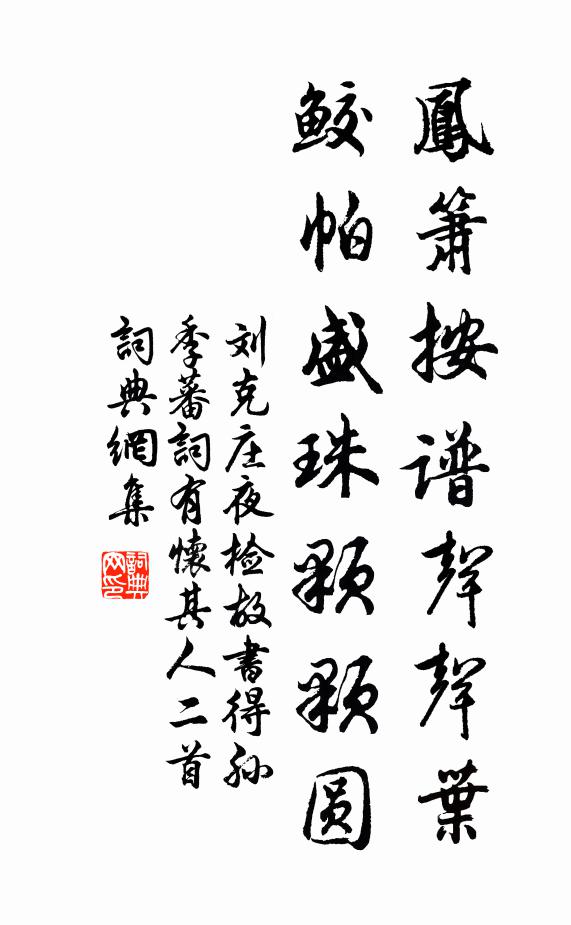 鳳簫按谱聲聲葉
鮫帕盛珠顆顆圆
刘克庄夜检故書得孙
季蕃詞有懷其人二首
詞典網集
詞典网印